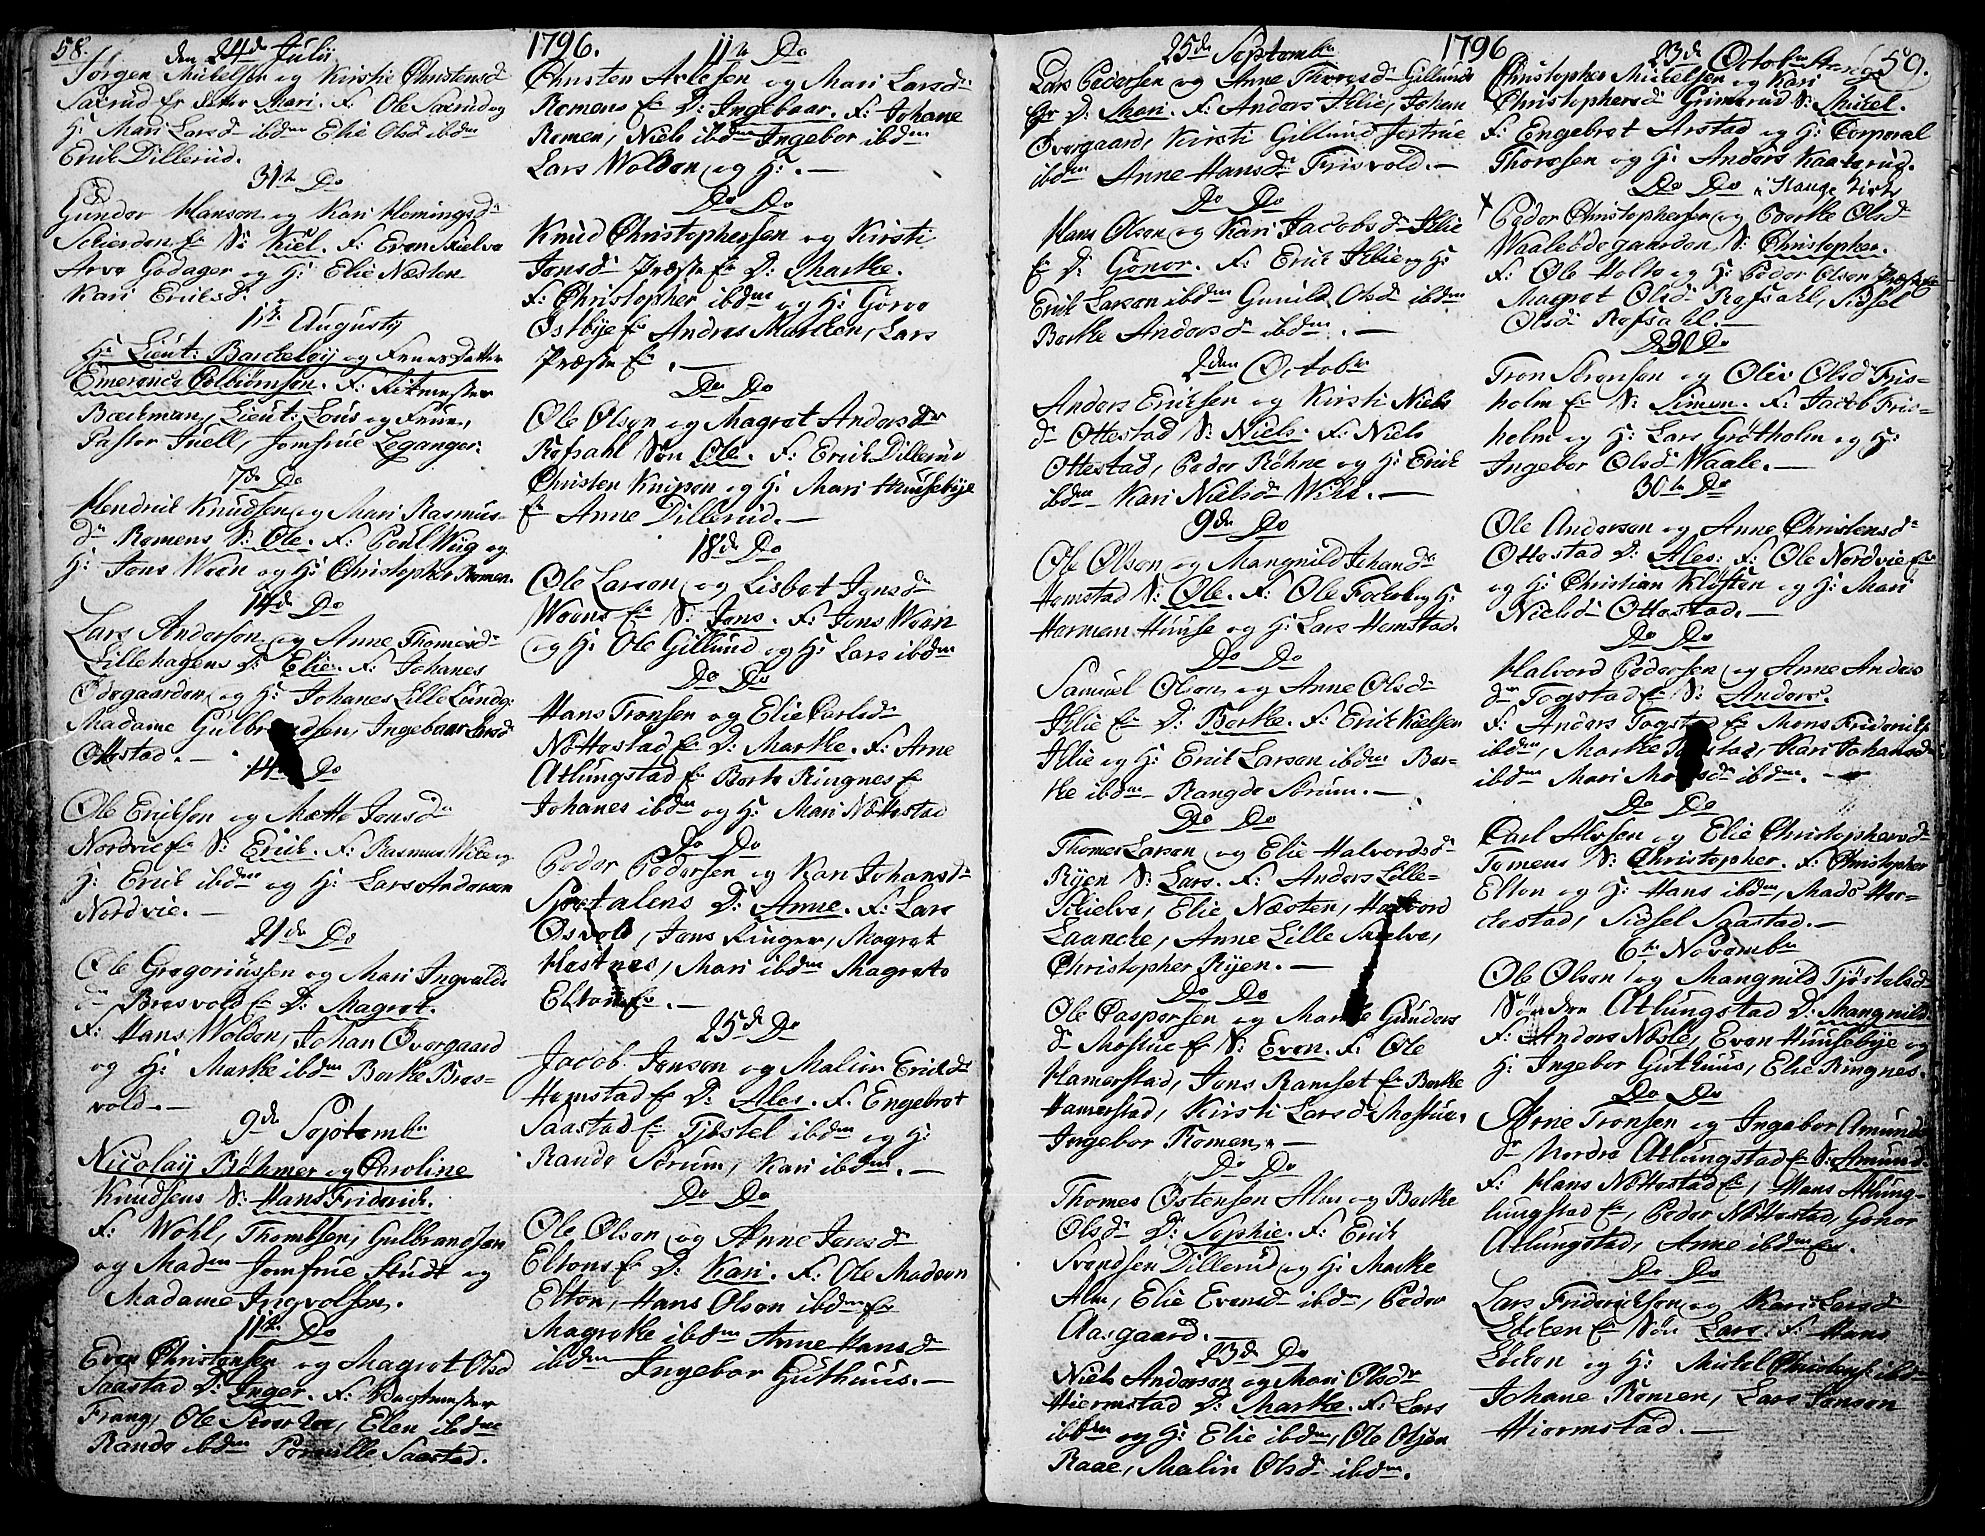 58.
1796.
den 24de Julii
Jørgen Mickelsen og Kirstie Christensd
Saxrud Ex datter Mari. F: Ole Saxrud og
H: Mari Larsd ibdm Elie Olsd ibdm
Erik Dillerud.
31te Do
Gunder Hanson og Kari Hemingsdr
Schierden Ex S: Kiel. F: Even Skielve
Arve Godager og H: Elie Næsten
Kari Eriksd.
1ste Augusty
Hr Lieut: Barteloy og Frues Datter
Emerence F: Ritmester
Backman, Lieut: Lous og Frue,
Pastor Juell, Jomfrue Leganger.
7de Do
Hendrik Knudsen og Mari Rasmus-
dr Romens S: Ole. F: Poul Wiig og
H: Jons Woen og H: Christopher Romen.
14de Do
Lars Anderson og Anne Thomesdr
Lillehagens D: Elie. F: Johanes
Ødegaarden og H: Johanes Lille Lundg.
Madame Gulbrandsen, Ingebaar Larsd
Ottestad. —
14de Do
Ole Erikson og Mette Jonsdr
Nordvie Ex S: Erik. F: Rasmus Wee og
H: Erik ibdm og H: Lars Anderson
Nordvie. —
21de Do
Ole Gregoriussen og Mari Ingvalds
dr Bresvold Ex D: Magret.
F: Hans Wolden, Johan Overgaard
og H: Marthe ibdm Berthe Bres-
vold. —
9de Septembr
Nicolaij Böhmer og Caroline
Knudsens S: Hans Fridrich.
F: Wohl, Thomsen, Gulbrandsen
og Madm Jomfrue Studt og
Madame Ingvolsen.
11te Do
Even Christensen og Magret Olsd
Saastad D: Inger. F: Vagtmester
Frang, Ole Elen ibdm
Rande ibdm Pernille Saastad.
11te Do
Christen Arlesen og Mari Larsdr
Romens Ex D: Ingebaar. F: Johane
Romen, Niels ibdm Ingebor ibdm
Lars Wolden og H: —
Do Do
Knud Christophersen og Kirsti
Jonsdr Præst Ex D: Marthe.
F: Christopher ibdm og H: Goro
Østbye Ex Andres Morthen, Lars
Præst Ex. —
Do Do
Ole Olson og Magret Andersdr
Refsahl Søn Ole. F: Erik Dillerud
Christen Knipson og H: Mari Huusebye
Ex Anne Dillerud. —
18de Do
Ole Larson og Lisbet Jonsdr
Woens Ex S: Jons. F: Jons Woen
og H: Ole Gillund og H: Lars ibdm
Do Do
Hans Tronsen og Elie Carlsdr
Nöttestad Ex D: Marthe. F: Arne
Atlungstad Ex Berte Ringnes Ex
Johanes ibdm og H: Mari Nöttestad
Do Do
Peder Pedersen og Kari Johansdr
Sjørtalens D: Anne. F: Lars
Osvold, Jons Finger, Magret
Hestnes, Mari ibdm Magrete
Elton Ex. —
25de Do
Jacob Jenson og Malien Eriksdr
Hemstad Ex D: Ales. F: Engebret
Saastad Ex Tjöstel ibdm og H:
Rande Sørum, Kari ibdm. —
Do Do
Ole Olson og Anne Jonsdr
Eltons Ex D: Kari. F: Ole Madson
Elton, Hans Olson ibdm Ex
Magrethe ibdm Anne Hansdr
ibdm Ingebor Guthuus. —
1796
59.
25de Septembr
Lars Pedersen og Anne Thoresdr Gillund
Ex D: Mari. F: Anders Ilie, Johan
Overgaard, Kirsti Gillund Jertrue
ibdm Anne Hansdr Frisvold. —
Do Do
Hans Olson og Kari Jacobsdr Ilie
Ex D: Gonor. F: Erik Ilie og H:
Erik Larson ibdm Gunild Olsd ibdm
Berthe Andersdr ibdm. —
2den Octobr
Anders Eriksen og Kirsti Niels
dr Ottestad S: Niels. F: Niels
Ottestad, Peder Röhne og H: Erik
ibdm Kari Nielsdr Wihl. —
9de Do
Ole Olson og Mangnild Johandr
Hemstad S: Ole. F: Ole Foderl og H:
Herman Huuse og H: Lars Hemstad.
Do Do
Samuel Olson og Anne Olsdr
Ilie Ex D: Berthe. F: Erik Nielsen
Ilie og H: Erik Larson ibdm Ber-
the ibdm Rangde Sörum. —
Do Do
Thomes Larson og Elie Halvordsdr
Ryen S: Lars. F: Anders Lille-
Skielve, Elie Næsten, Halvord
Laancke, Anne Lille Skielve,
Christopher Ryen. —
Do Do
Ole Caspersen og Marthe Gunders
dr Mostue Ex S: Even. F: Ole
Hamerstad, Jons Ramset Ex Berthe
Hamerstad, Kirsti Larsdr Mostue,
Ingebor Romen. —
Do Do
Thomes Østensen Alm og Berthe
Olsdr D: Sophie. F: Erik
Svendsen Dillerud og H: Marthe
Alm, Elie Evensdr ibdm, Peder
Aasgaard. —
23de Do
Niels Anderson og Mari Olsdr
Hiermstad D: Marthe. F: Lars
ibdm og H: Elie ibdm, Ole Olsen
Raae, Malin Olsdr ibdm.
23de Octobr
Christopher Mickelsen og Kari
Christophersdr Grimerud S: Mikel.
F: Engebret Arstad og H: Corporal
Thoresen og H: Anders Kaaterud.
Do Do i Stange Kirke
Peder Christophersen og Berthe Olsdr
Waaleödegaarden S: Christopher.
F: Ole Holte og H: Peder Olson
Magret Olsdr Refsahl, Sidsel
Olsdr Refsahl. —
D30Do
Tron Sörensen og Oliv Olsdr Fris-
holm Ex S: Simen. F: Jacob Fris-
holm og H: Lars Grötholm og H:
Ingebor Olsdr Waale. —
30te Do
Ole Anderson og Anne Christensdr
Ottestad D: Ales. F: Ole Nordvie Ex
og H: Christian Kloften og H: Mari
Nielsdr Ottestad. —
Do Do
Halvord Pedersen og Anne Anders
dr Togstad Ex S: Anders.
F: Anders Togstad Ex Mons Friderichs
ibdm, Marthe Togstad, Kari Johansdr
ibdm Mari Monsdr ibdm. —
Do Do
Carl Alvsen og Elie Christophersdr
Tomens S: Christopher. F: Christopher
Elton og H: Hans ibdm, Mads Hor-
destad, Sidsel Saastad. —
6te Novembr
Ole Olson og Mangnild Tjöstelsdr
Sönden Atlungstad D: Mangnild.
F: Anders Nøsle, Even Huusebye og
H: Ingebor Guthuus, Elie Ringnes.
Do Do
Arne Tronsen og Ingebor Amunds
dr Nordre Atlungstad Ex S: Amund.
F: Hans Nöttestad Ex, Hans Atlung-
lungstad Ex, Peder Nöttestad, Gonor
Atlungstad, Anne ibdm Ex.
Do Do
Lars Friderichson og Kari Larsdr
Löcken Ex Søn Lars. F: Hans
Löcken og H: Mickel ibdm
Johane Romen, Lars Jenson
Hiermstad. —